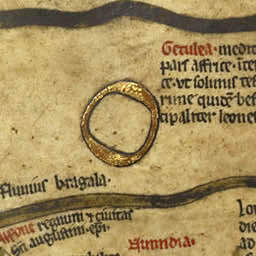 Getulea · medit
pars affrice · ite
ce · vt solinus te
rime quidē bes
cipaliter leonet
Fluuius bragala·
regnum ⁊ ciuitas
sci augustini · epi·
Numidia·
die
ad